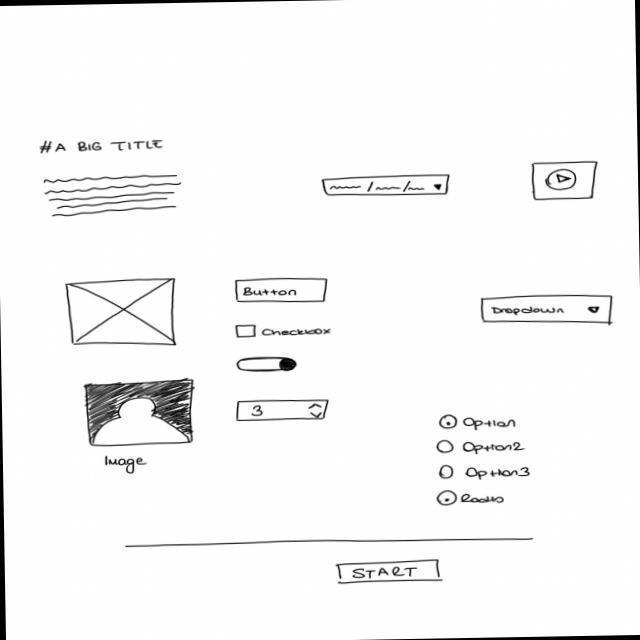 #A BIG TITLE
Button
Checkbox
Dropdown
3
Option
Option2
Option3
Image
START